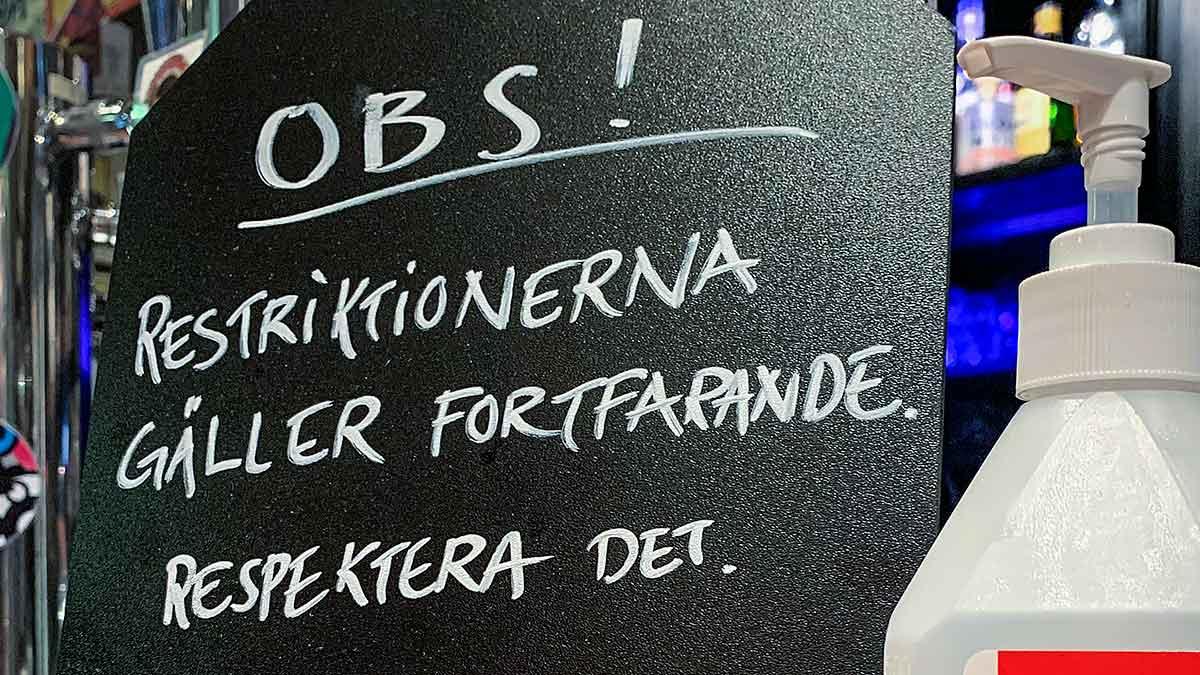 OBS!
RESTRIKTIONERNA
GÄLLER FORTFARANDE.
RESPEKTERA DET.